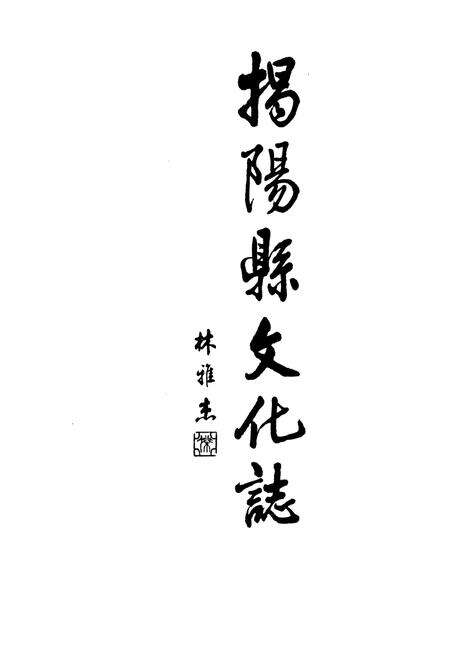 揭陽縣文化誌
林雅杰